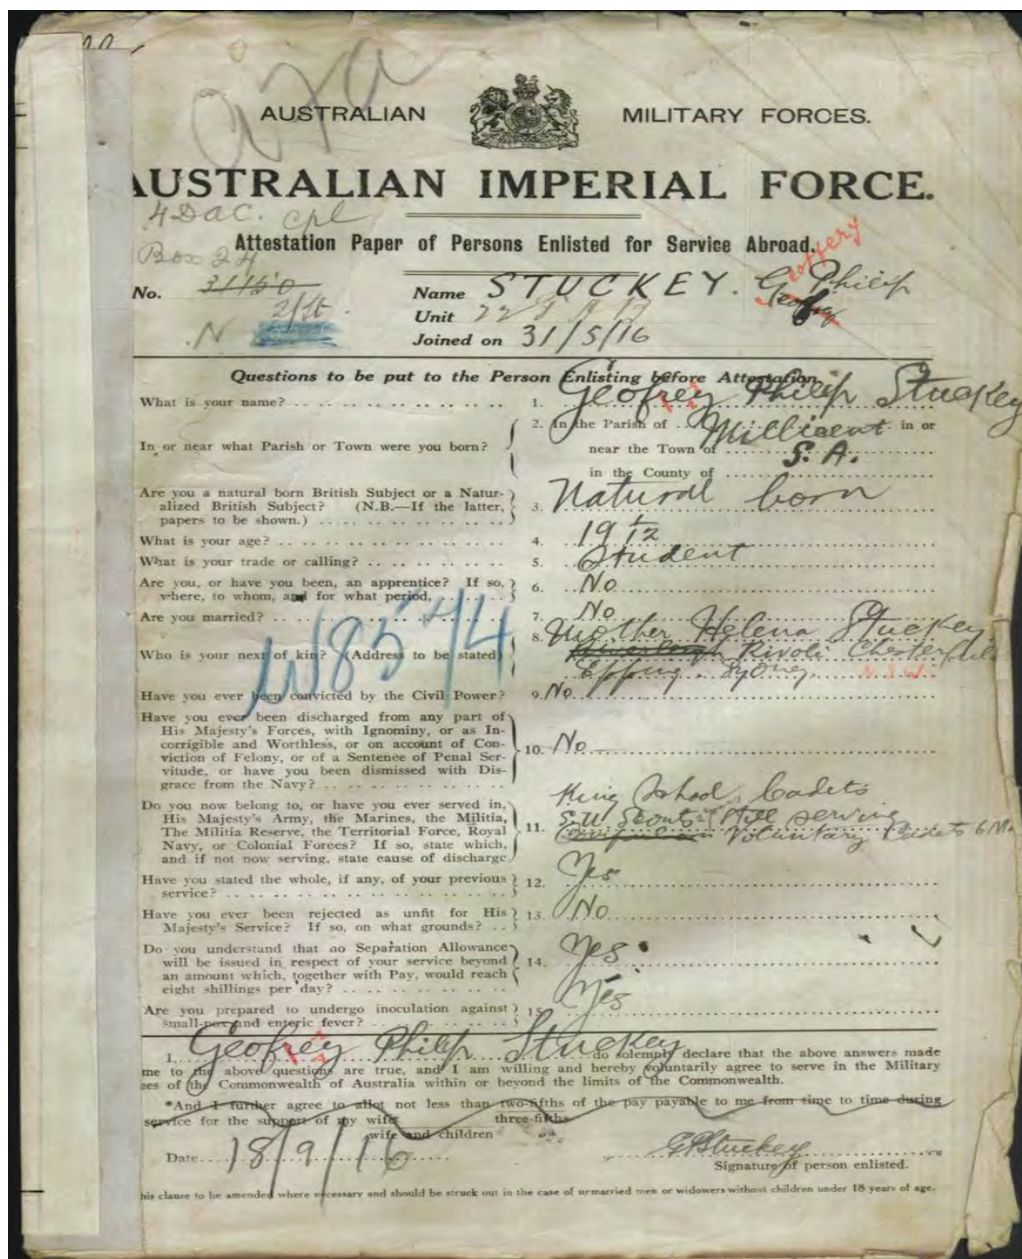 AUSTRALIAN MILITARY FORCES.
AUSTRALIAN IMPERIAL FORCE.
4 DAC. cpl
Attestation Paper of Persons Enlisted for Service Abroad.
Box 24
Geoffery
No. 31150 Name STUCKEY. G Philip
2/Lt Unit
N Joined on 31/5/16
Questions to be put to the Person Enlisting before Attestation.
What is your name? 1. Geofrey Philip Stuckey
In or near what Parish or Town were you born? 2. In the Parish of Millicent in or
near the Town of S.A.
in the County of
Are you a natural born British Subject or a Natur-
alized British Subject? (N.B.—If the latter, 3. Natural born
papers to be shown.)
What is your age? 4. 19 1/12
What is your trade or calling? 5. Student
Are you, or have you been, an apprentice? If so, 6. No
where, to whom, and for what period,
Are you married? 7. No
W8574
8. Mother Helena Stuckey
Who is your next of kin? (Address to be stated) Rivoli Chesterfield
Epping. Sydney. N.S.W.
Have you ever been convicted by the Civil Power? 9. No
Have you ever been discharged from any part of
His Majesty's Forces, with Ignominy, or as In-
corrigible and Worthless, or on account of Con-
viction of Felony, or of a Sentence of Penal Ser- 10. No
vitude, or have you been dismissed with Dis-
grace from the Navy?
King School Cadets
Do you now belong to, or have you ever served in,
His Majesty's Army, the Marines, the Militia, S.U. Scouts still serving
The Militia Reserve, the Territorial Force, Royal 11. Voluntary Cadets 6 M
Navy, or Colonial Forces? If so, state which,
and if not now serving, state cause of discharge
Have you stated the whole, if any, of your previous 12. Yes
service?
Have you ever been rejected as unfit for His 13. No
Majesty's Service? If so, on what grounds?
Do you understand that no Separation Allowance
will be issued in respect of your service beyond 14. Yes
an amount which, together with Pay, would reach
eight shillings per day?
Are you prepared to undergo inoculation against 15. Yes
small-pox and enteric fever?
I, Geofrey Philip Stuckey do solemnly declare that the above answers made
me to the above questions are true, and I am willing and hereby voluntarily agree to serve in the Military
es of the Commonwealth of Australia within or beyond the limits of the Commonwealth.
*And I further agree to allot not less than two-fifths of the pay payable to me from time to time during
service for the support of my wife three-fifths
wife and children
Date 18/9/16 GPStuckey
Signature of person enlisted.
his clause to be amended where necessary and should be struck out in the case of unmarried men or widowers without children under 18 years of age.